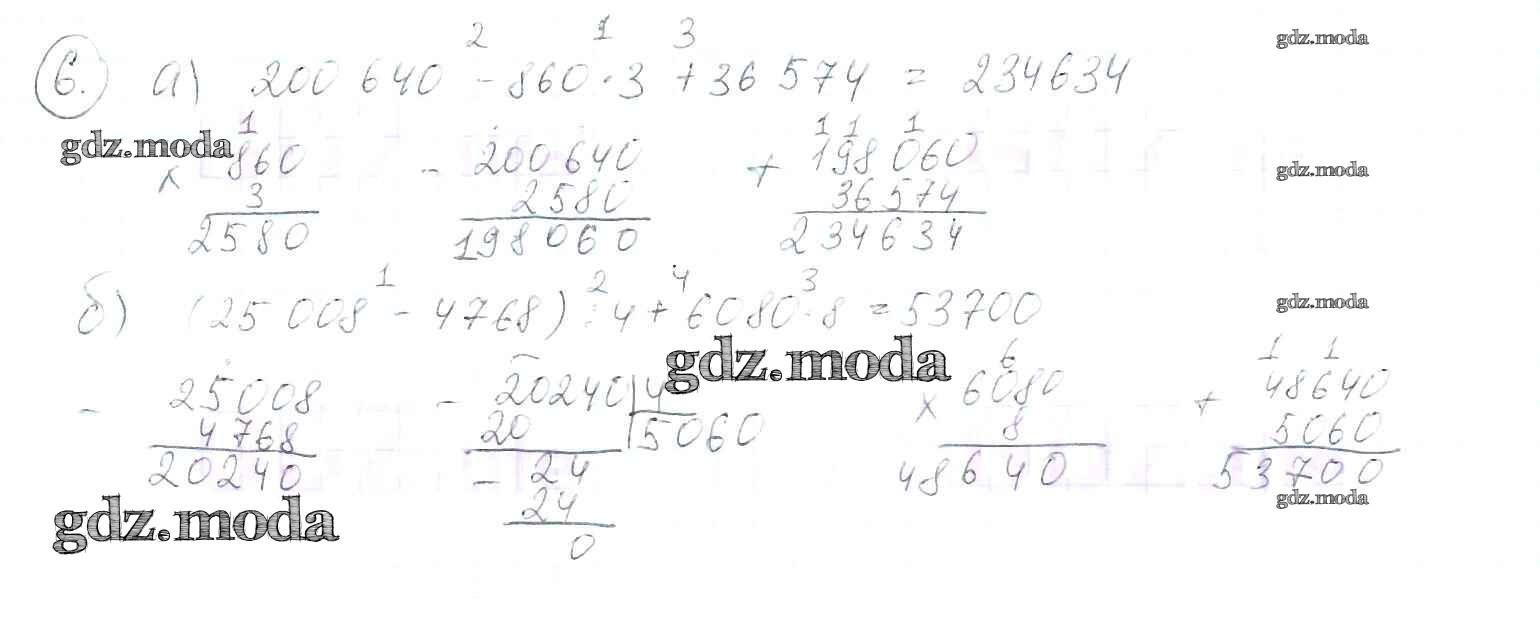 2 1 3
6. а) 200 640 - 860 · 3 + 36 574 = 234634
gdz.moda
1
× 860
3
2580
- 200640
2580
198060
1 1 1
+ 198060
36574
234634
gdz.moda
gdz.moda
1 2 4 3
б) (25 008 - 4768) : 4 + 6080 · 8 = 53700
gdz.moda
gdz.moda
- 25008
4768
20240
- 20240 | 4
20 | 5060
- 24
24
0
6
× 6080
8
48640
1 1
+ 48640
5060
53700
gdz.moda
gdz.moda